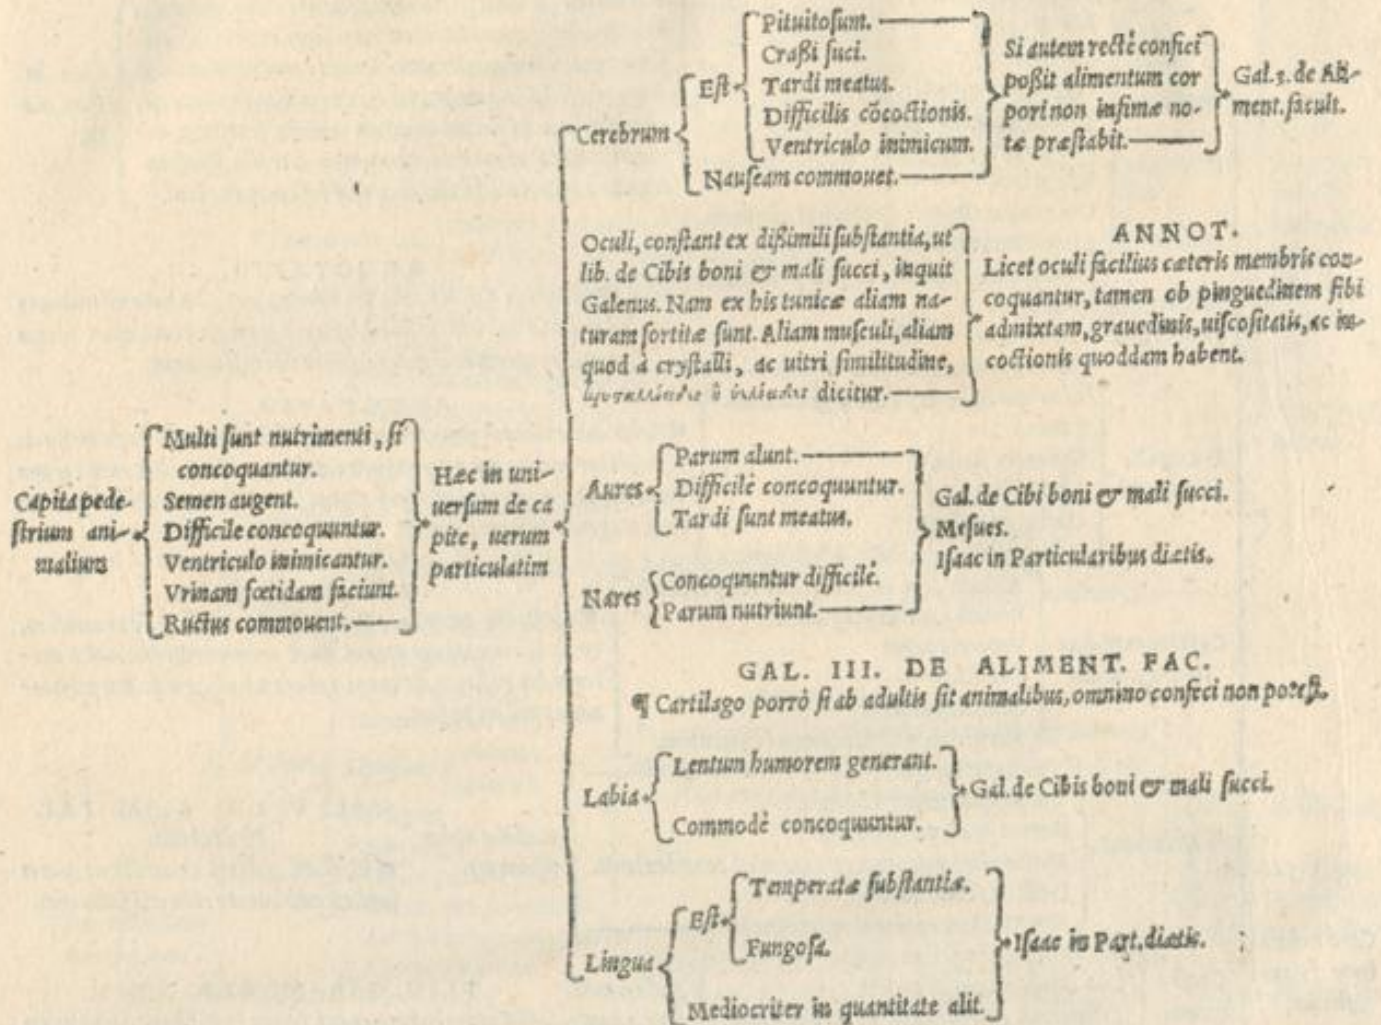 Capita pede-
strium ani-
malium
Multi sunt nutrimenti, si
concoquantur.
Semen augent.
Difficile concoquuntur.
Ventriculo inimicantur.
Vrinam fœtidam faciunt.
Ructus commouent.
Hæc in uni-
uersum de ca
pite, uerum
particulatim
Cerebrum
Est
Pituitosum.
Craßi suci.
Tardi meatus.
Difficilis cōcoctionis.
Ventriculo inimicum.
Nauseam commouet.
Si autem rectè confici
poßit alimentum cor
pori non infimæ no-
tæ præstabit.
Gal. 3. de Ali-
ment. facult.
Oculi, constant ex dißimili substantia, ut
lib. de Cibis boni & mali succi, inquit
Galenus. Nam ex his tunicæ aliam na-
turam sortitæ sunt. Aliam musculi, aliam
quod à crystalli, ac uitri similitudine,
dicitur.
ANNOT.
Licet oculi facilius cæteris membris con-
coquantur, tamen ob pinguedinem sibi
admixtam, grauedinis, uiscositatis, ac in-
coctionis quoddam habent.
Aures
Parum alunt.
Difficilè concoquuntur.
Tardi sunt meatus.
Nares
Concoquuntur difficilè.
Parum nutriunt.
Gal. de Cibi boni & mali succi.
Mesues.
Isaac in Particularibus diætis.
GAL. III. DE ALIMENT. FAC.
¶ Cartilago porrò si ab adultis sit animalibus, omnino confici non potest.
Labia
Lentum humorem generant.
Commodè concoquuntur.
Gal. de Cibis boni & mali succi.
Lingua
Est
Temperatæ substantiæ.
Fungosa.
Mediocriter in quantitate alit.
Isaac in Part. diætis.